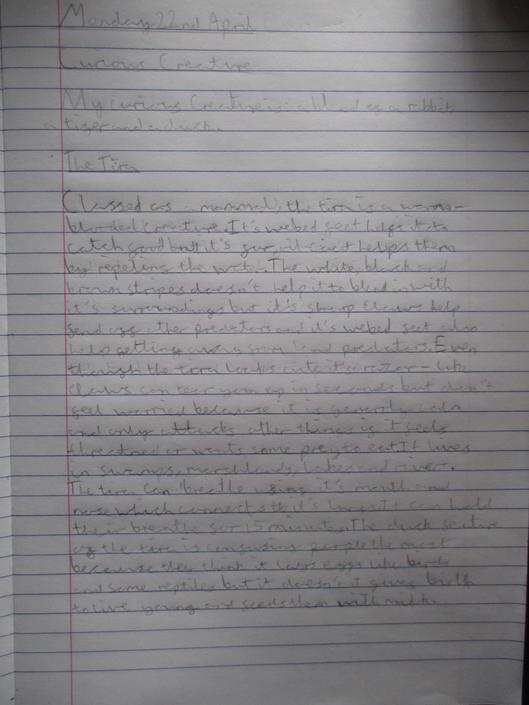 Monday 22nd April
Curious Creature
My curious Creature is a blend of a rabbit
a tiger and a duck.
The Tira
Classed as a mammal, the tira is a warm-
blooded creature. It's webed feet helps it to
catch food but it's fur oil coat helps them
by repeling the water. The white, black and
brown stripes doesn't help it to blend in with
it's surroundings but it's sharp claws help
fend off other predeters and it's webed feet also
help getting away from land predaters. Even
though the tira looks cute it a razor-like
claws can tear you up in seconds but don't
feel worried because it is generaly calm
and only attacks other things if it feels
threatned or wants some prey to eat. It lives
in swamps, marshlands, lakes and rivers.
The tira can breathe using it's mouth and
nose which connects to it's lungs. It can hold
their breathe for 15 minuts. The duck feature
of the tira is confusing people the most
because they think it lays eggs like birds
and some reptiles but it doesn't it gives birth
to live young and feeds them with milk.